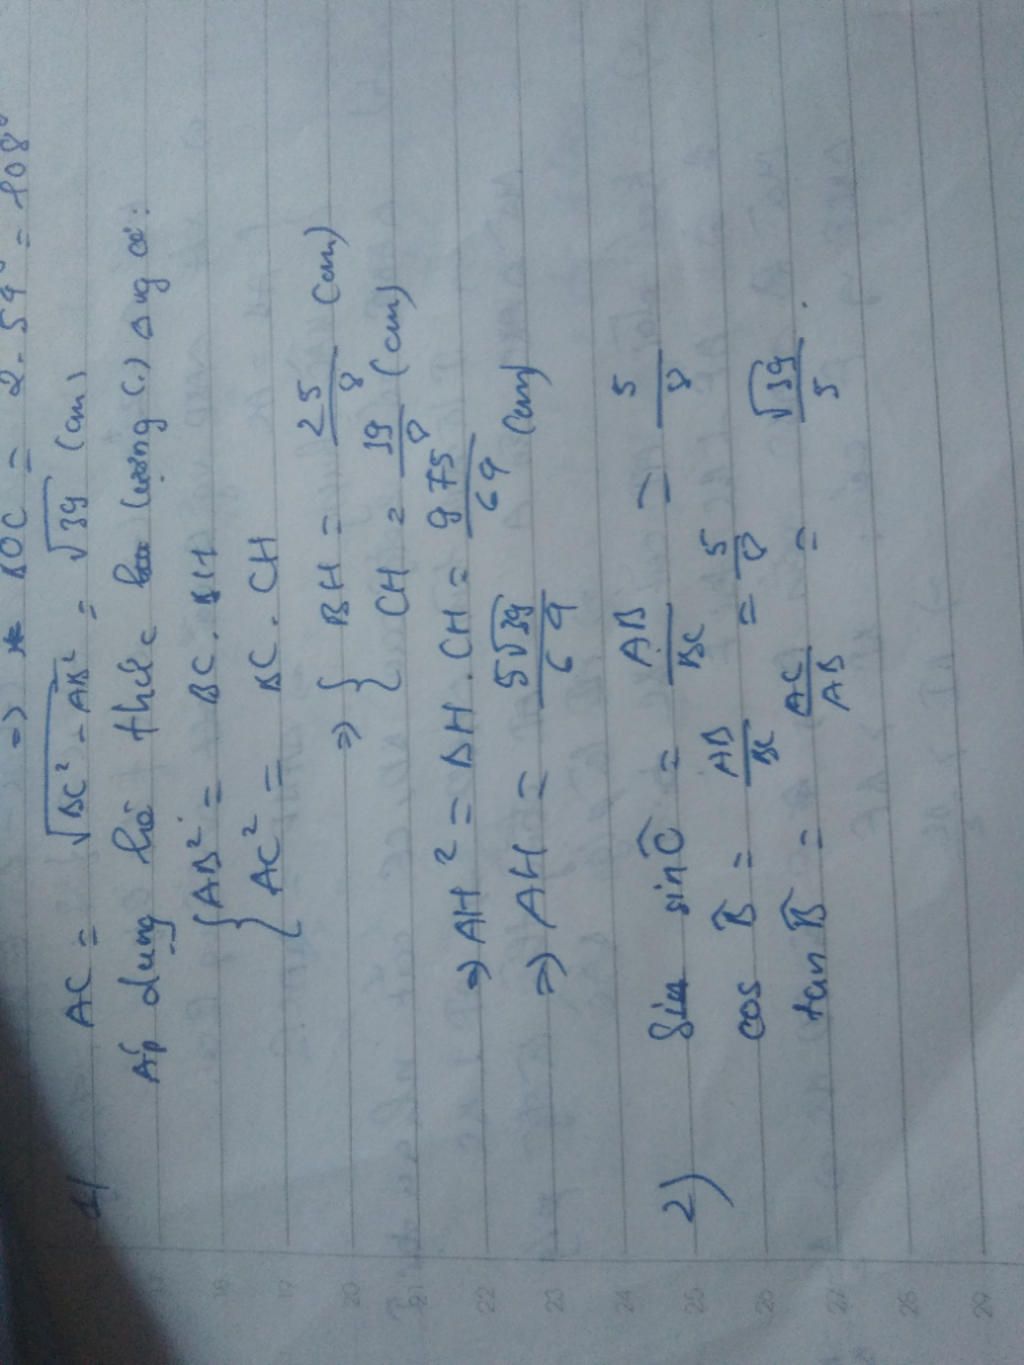 => BOC = 2.54° = 108°
1/ AC = √BC² - AB² = √39 (cm)
Áp dụng hệ thức lượng (.) Δ vg có:
{AB² = BC. BH
AC² = BC. CH
=> { BH = 25/8 (cm)
CH = 39/8 (cm)
=> AH² = BH. CH = 975/64
=> AH = 5√39/64 (cm)
2) sin Ĉ = AB/BC = 5/8
cos B̂ = AB/BC = 5/8
tan B̂ = AC/AB = √39/5.
17
18
17
20
21
22
23
24
25
26
27
28
29